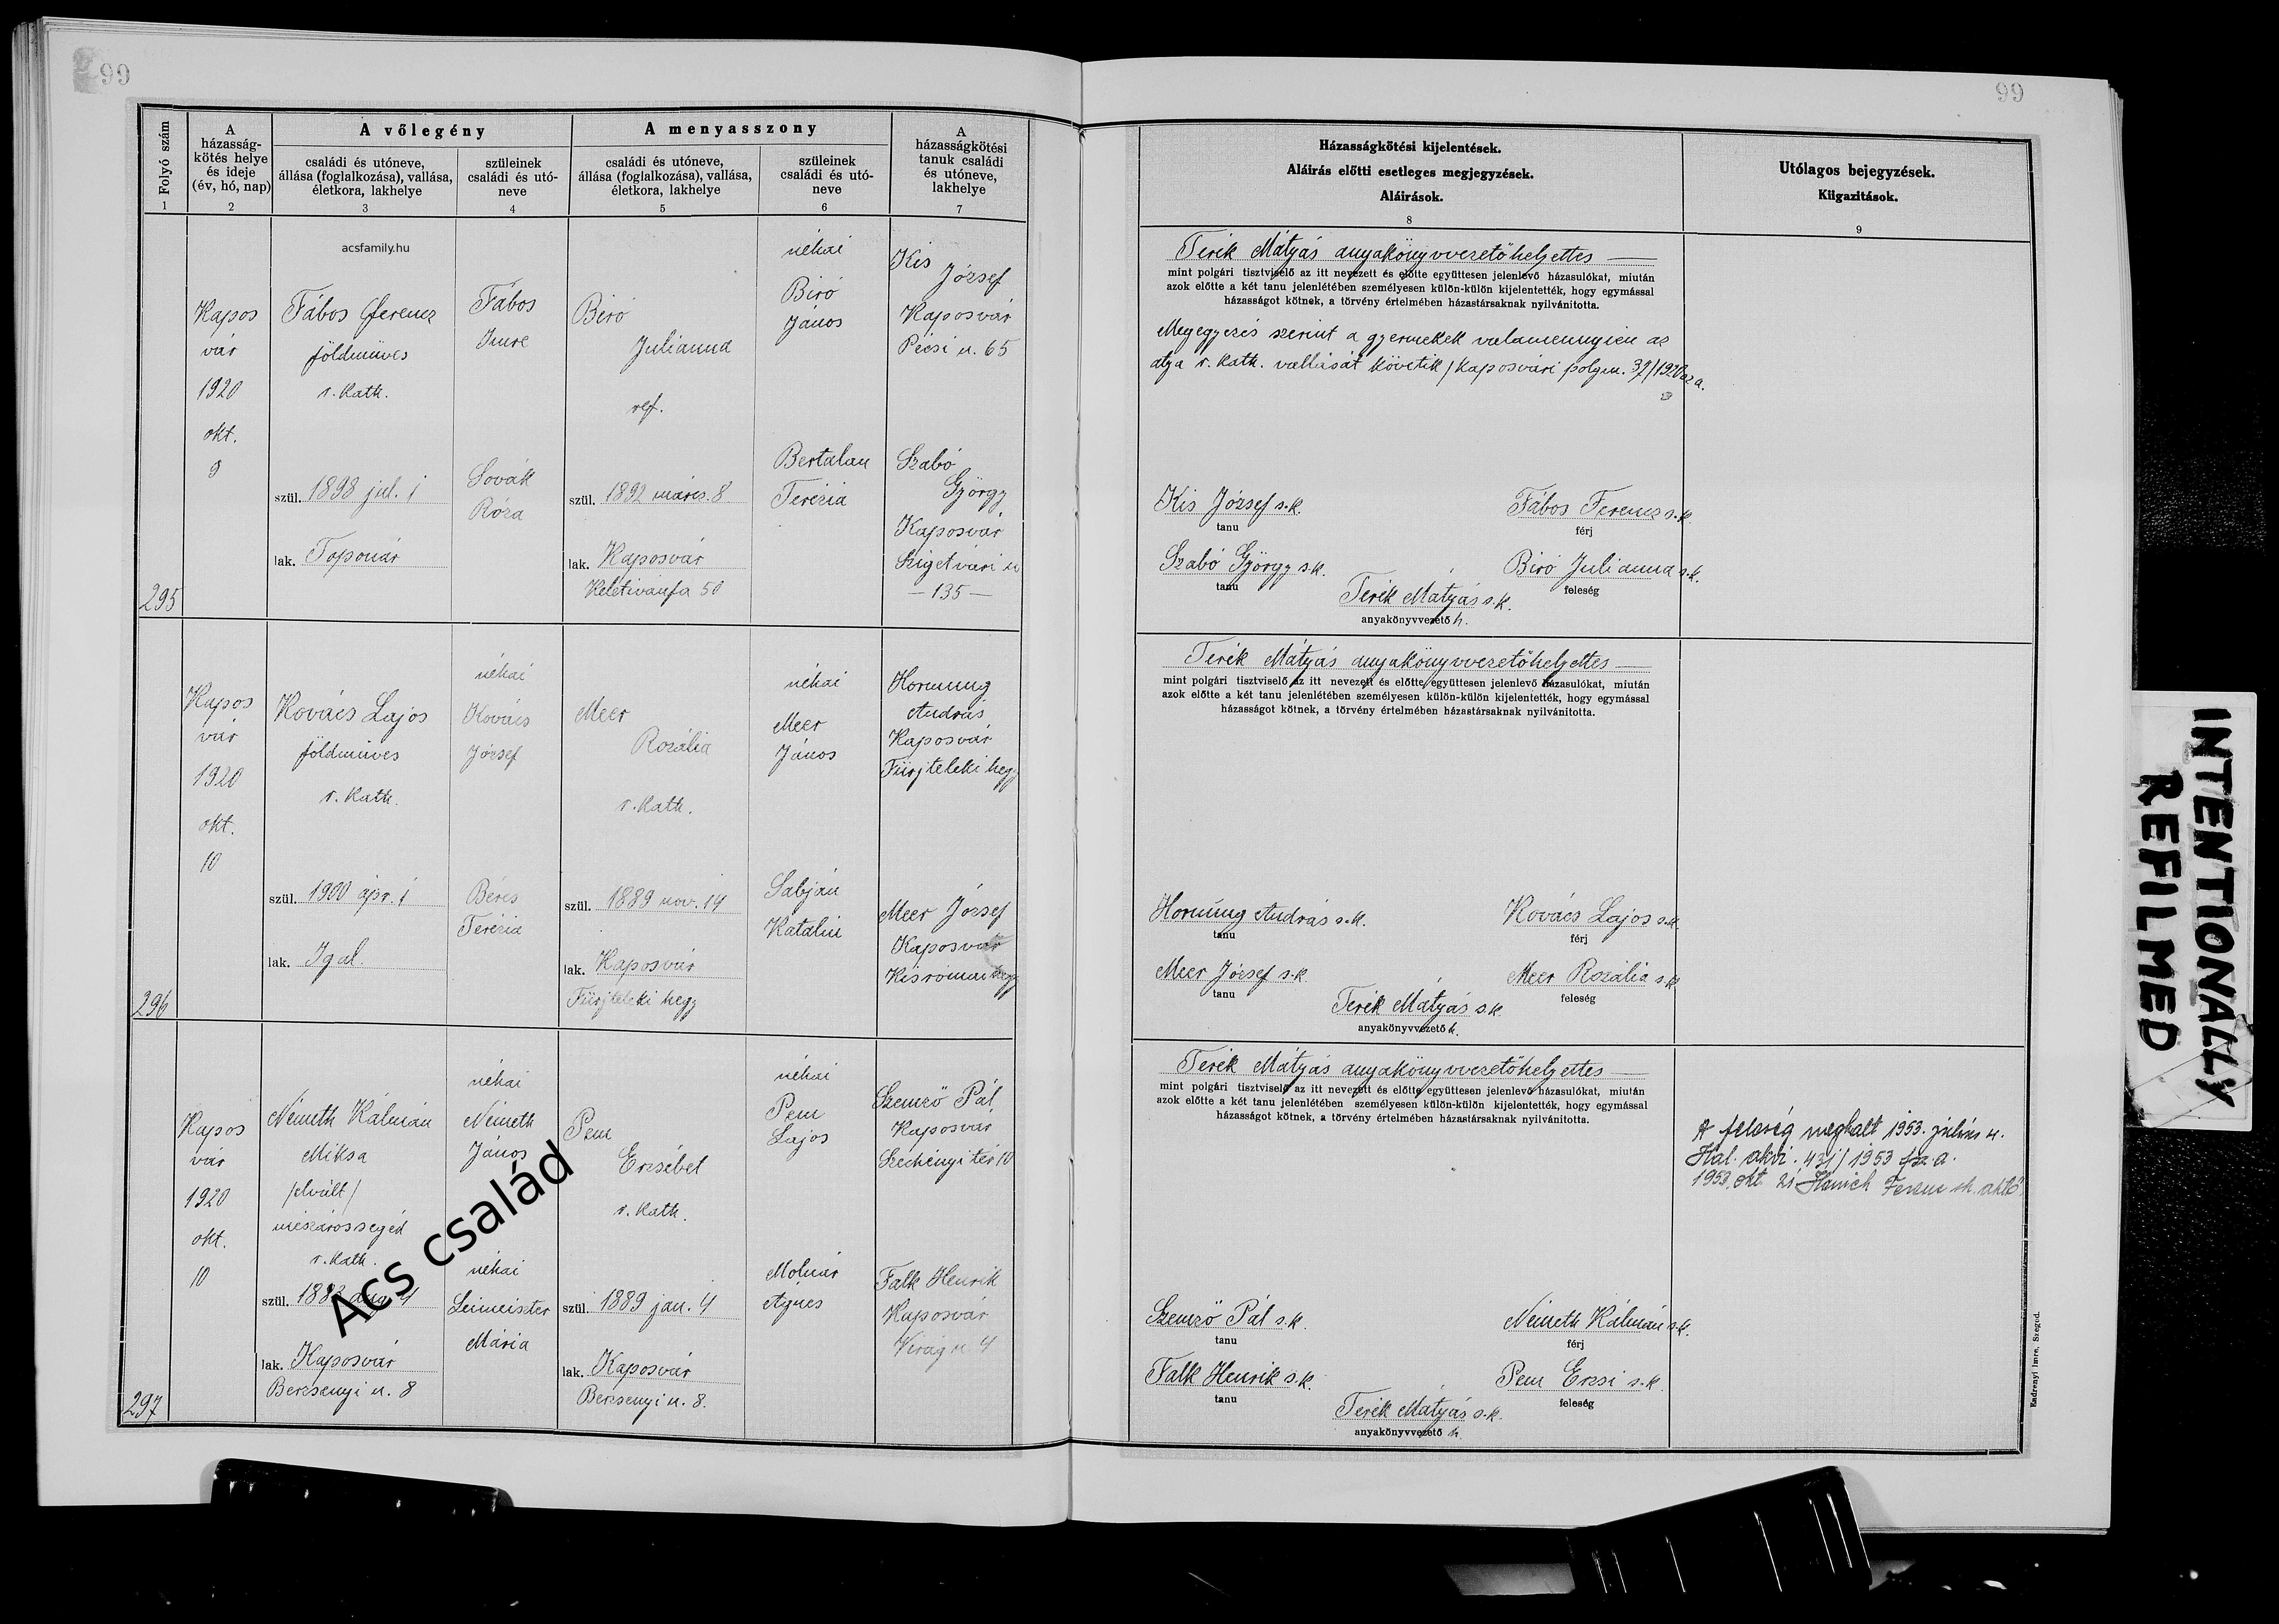 99
99
Folyó szám
1
A
házasság-
kötés helye
és ideje
(év, hó, nap)
2
A vőlegény
családi és utóneve,
állása (foglalkozása), vallása,
életkora, lakhelye
3
szüleinek
családi és utó-
neve
4
A menyasszony
családi és utóneve,
állása (foglalkozása), vallása,
életkora, lakhelye
5
szüleinek
családi és utó-
neve
6
A
házasságkötési
tanuk családi
és utóneve,
lakhelye
7
Házasságkötési kijelentések.
Aláirás előtti esetleges megjegyzések.
Aláirások.
8
Utólagos bejegyzések.
Kiigazitások.
9
acsfamily.hu
295
Kapos
vár
1920
okt.
9
Fábos Ferencz
földműves
r. kath.
szül. 1898 jul. 1
lak. Toponár
Fábos
Imre
Sovák
Róza
Biró
Julianna
ref.
szül. 1892 márcz. 8
lak. Kaposvár
Keletivánfa 50
néhai
Biró
János
Bertalan
Terézia
Kis
József
Kaposvár
Pécsi u. 65
Szabó
György
Kaposvár
Szigetvári u
— 135 —
Terék Mátyás anyakönyvvezetőhelyettes —
mint polgári tisztviselő az itt nevezett és előtte együttesen jelenlevő házasulókat, miután
azok előtte a két tanu jelenlétében személyesen külön-külön kijelentették, hogy egymással
házasságot kötnek, a törvény értelmében házastársaknak nyilvánitotta.
Megegyezés szerint a gyermekek valamennyien az
atya r. kath. vallását követik / kaposvári polgm. 37/1920 sz a.
Kis József s.k.
tanu
Fábos Ferencz s.k.
férj
Szabó György s.k.
tanu
Biró Julianna s.k.
feleség
Terék Mátyás s.k.
anyakönyvvezető h.
296
Kapos
vár
1920
okt.
10
Kovács Lajos
földműves
r. kath.
szül. 1900 ápr. 1
lak. Igal.
néhai
Kovács
József
Béres
Terézia
Meer
Rozália
r. kath.
szül. 1889 nov. 14
lak. Kaposvár
Fürjteleki hegy
néhai
Meer
János
Sabján
Katalin
Hornung
András
Kaposvár
Fürjteleki hegy
Meer József
Kaposvár
Kisrómai hegy
Terék Mátyás anyakönyvvezetőhelyettes —
mint polgári tisztviselő az itt nevezett és előtte együttesen jelenlevő házasulókat, miután
azok előtte a két tanu jelenlétében személyesen külön-külön kijelentették, hogy egymással
házasságot kötnek, a törvény értelmében házastársaknak nyilvánitotta.
Hornung András s.k.
tanu
Kovács Lajos s.k.
férj
Meer József s.k.
tanu
Meer Rozália s.k.
feleség
Terék Mátyás s.k.
anyakönyvvezető h.
297
Kapos
vár
1920
okt.
10
Németh Kálmán
Miksa
/elvált/
mészárossegéd
r. kath.
szül. 1883 aug. 4
lak. Kaposvár
Berzsenyi u. 8
néhai
Németh
János
néhai
Leimeister
Mária
Pem
Erzsébet
r. kath.
szül. 1889 jan. 4
lak. Kaposvár
Berzsenyi u. 8.
néhai
Pem
Lajos
Molnár
Ágnes
Szemző Pál
Kaposvár
Széchényi tér 10
Falk Henrik
Kaposvár
Virág u. 4
Acs család
Terék Mátyás anyakönyvvezetőhelyettes —
mint polgári tisztviselő az itt nevezett és előtte együttesen jelenlevő házasulókat, miután
azok előtte a két tanu jelenlétében személyesen külön-külön kijelentették, hogy egymással
házasságot kötnek, a törvény értelmében házastársaknak nyilvánitotta.
A feleség meghalt 1953. július 4.
Hal. akvi. 431/1953 fsz. a.
1953. okt. 21 Ferenc sk. akvő
Szemző Pál s.k.
tanu
Németh Kálmán s.k.
férj
Falk Henrik s.k.
tanu
Pem Erzsi s.k.
feleség
Terék Mátyás s.k.
anyakönyvvezető h.
Endrenyi Imre, Szeged.
INTENTIONALLY
REFILMED